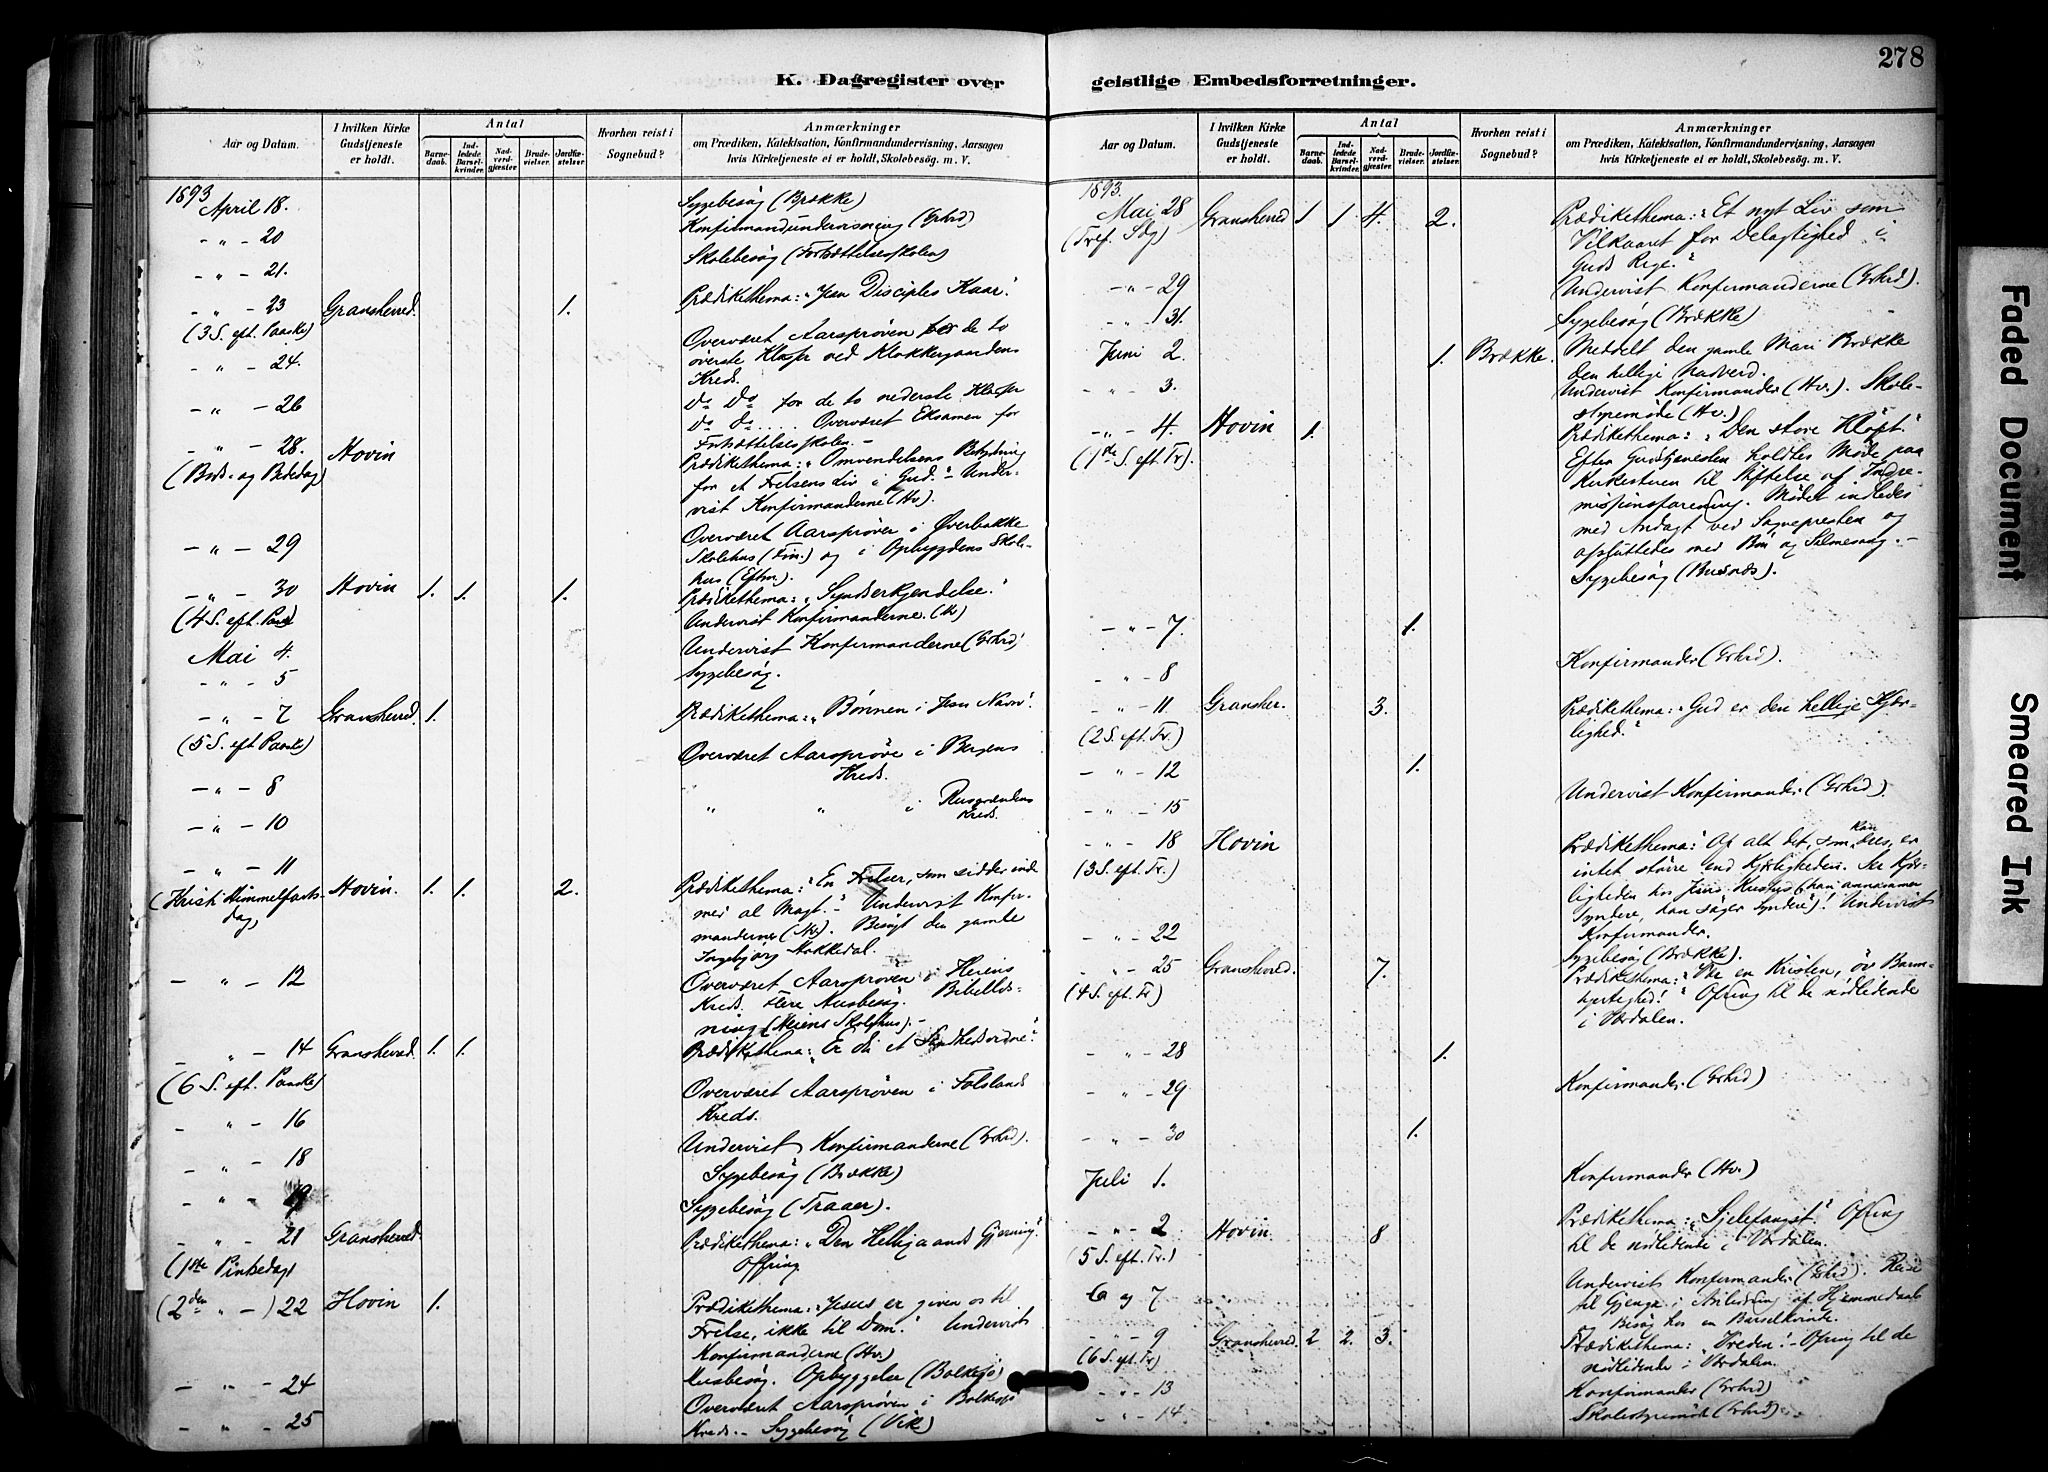 278
K. Dagregister over
geistlige Embedsforretninger.
Aar og Datum.
I hvilken Kirke Gudstjeneste er holdt.
Antal
Barnedaab.
Indledede Barselkvinder.
Nadverdgjester.
Brudevielser.
Jordfæstelser.
Hvorhen reist i Sognebud?
Anmærkninger
om Prædiken, Katekisation, Konfirmandundervisning, Aarsagen
hvis Kirketjeneste ei er holdt, Skolebesög. m. V.
1893
April 18. Sygebesøg (Brække)
- " - 20 Konfirmandundervisning (Grhrd)
- " - 21. Skolebesøg (Fortsættelsesskolen)
- " - 23 Gransherred. 1. Prædikethema: "Jesu Disciples Kaar".
(3 S. eft. Paaske)
- " - 24. Overværet Aarsprøven for de to
øverste Klasser ved Klokkergaardens
Kreds.
- " - 26 Do Do for de to nederste Klasser
Do do .... Overværet Eksamen for
Fortsættelsesskolen. -
- " - 28. Hovin Prædikethema: "Omvendelsens Betydning
(Bods- og Bededag) for et Frelsens Liv i Gud." - Under-
vist Konfirmanderne (Hv).
- " - 29 Overværet Aarsprøver i Øverbakke
Skolehus (Fm.) og i Opbygdens Skole-
hus (Eftm).
- " - 30 Hovin 1. 1. 1. Prædikethema: "Syndserkjendelse".
(4 S. eft. Paaske) Undervist Konfirmanderne. (Hv)
Mai 4. Undervist Konfirmanderne (Grhrd)
- " - 5 Sygebesøg.
- " - 7 Gransherred 1. Prædikethema: "Bønnen i Jesu Navn".
(5 S. eft Paaske)
- " - 8 Overværet Aarsprøve i Bergens
Kreds.
- " - 10 " " i Rusgrændens
Kreds.
- " - 11 Hovin. 1. 1. 2. Prædikethema: "En Frelser, som sidder inde
(Kristi Himmelfarts-
dag) med al Magt." - Undervist Konfir-
manderne (Hv). Besøgt den gamle
Ingebjørg Hakkedal.
- " - 12 Overværet Aarsprøven i Heiens
Kreds. Flere Husbesøg. Bibellæs-
ning (Heiens Skolehus). -
- " - 14 Gransherred. 1. 1. Prædikethema: "Er du et Sandhedsvidne".
(6 S. eft. Paaske)
- " - 16 Overværet Aarsprøven i Folslands
Kreds.
- " - 18 Undervist Konfirmanderne (Grhrd).
Sygebesøg (Brække)
- " - 19 Sygebesøg (Traaer).
- " - 21 Gransherred Prædikethema: "Den Helligaands Gjerning".
(1ste Pinsedag) Offring
(2den - " -) 22 Hovin 1. Prædikethema: "Jesus er given os til
Frelse, ikke til Dom." Undervist
Konfirmanderne (Hv.)
- " - 24 Husbesøg. Opbyggelse (Bolkesjø)
- " - 25 Overværet Aarsprøven i Bolkesjø
Kreds. - Sygebesøg (Vik)
Aar og Datum.
I hvilken Kirke Gudstjeneste er holdt.
Antal
Barnedaab.
Indledede Barselkvinder.
Nadverdgjester.
Brudevielser.
Jordfæstelser.
Hvorhen reist i Sognebud?
Anmærkninger
om Prædiken, Katekisation, Konfirmandundervisning, Aarsagen
hvis Kirketjeneste ei er holdt, Skolebesög. m. V.
1893.
Mai 28 Gransherred 1 1 4. 2. Prædikethema: "Et nyt Liv som
(Tref. Sdg) Vilkaaret for Delagtighed i
Guds Rige."
- " - 29 Undervist Konfirmanderne (Grhrd).
- " - 31. Sygebesøg (Brække)
Juni 2. 1. Brække. Meddelt den gamle Mari Brække
den hellige Nadverd.
- " - 3. Undervist Konfirmander (Hv). Skole-
styremøde (Hv.)
- " - 4. Hovin 1. Prædikethema: "Den store Kløft."
(1ste S. eft. Tr). Efter Gudstjenesten holdtes Møde paa
Kirkestuen til Stiftelse af Indre-
missionsforening. Mødet indledes
med Andagt ved Sognepresten og
afsluttedes med Bøn og Salmesang. -
Sygebesøg (Busnæs).
- " - 7. 1.
- " - 8 Konfirmander (Grhrd).
- " - 11 Gransher. 3. Prædikethema: "Gud er den hellige Kjær-
(2 S. eft. Tr.) lighed."
- " - 12 1.
- " - 15 Undervist Konfirmander (Grhrd)
- " - 18 Hovin Prædikethema: "Af alt det, som kan sees, er
(3 S. eft. Tr) intet større end Kjærligheden. Se Kjær-
ligheden hos Jesus Kristus (han annammer
Syndere, han søger Syndere)! Undervist
Konfirmander.
- " - 22 Sygebesøg (Brække).
- " - 25 Gransherred. 7. Prædikethema: "Er en Kristen, øv Barm-
(4 S. eft. Tr) hjertighed!" Ofring til de nødlidende
i Værdalen.
- " - 28 1.
- " - 29 Konfirmander (Grhrd)
- " - 30 1.
Juli 1. Konfirmander (Hv.)
- " - 2 Hovin. 8 Prædikethema: "Sjelefangst." Ofring
(5 S. eft. Tr.) til de nødlidende i Værdalen.
6 og 7 Undervist Konfirmander (Grhrd). Reise
til Gjenge i Anledning af Hjemmedaab.
Besøg hos en Barselkvinde.
- " - 9 Gransherred. 2 2. 3. Prædikethema: "Vreden". - Ofring til de
(6 S. eft. Tr) nødlidende i Værdalen.
- " - 13 Konfirmander (Grhrd)
- " - 14. Skolestyremøde (Grhrd)
Faded Document
Smeared Ink